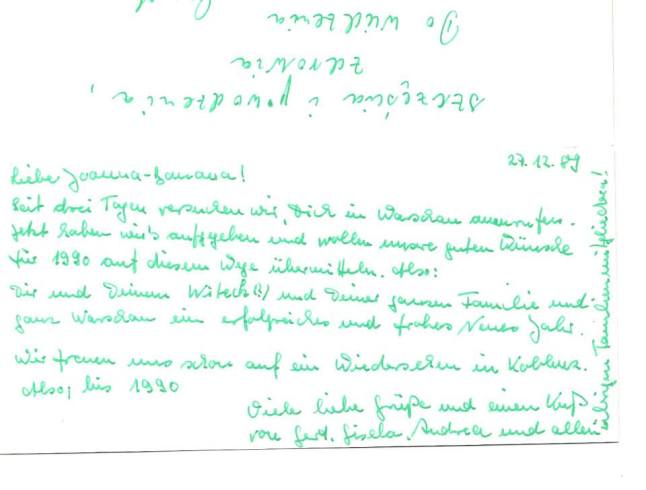 szczęścia i powodzenia,
zdrowia
Do widzenia
27.12.89
Liebe Joanna-Banana!
Seit drei Tagen versuchen wir, Dich in Warschau anzurufen.
Jetzt haben wir's aufgegeben und wollen unsre guten Wünsche
für 1990 auf diesem Wege übermitteln. Also:
Dir und Deinem Witech(?) und Deiner ganzen Familie und
ganz Warschau ein erfolgreiches und frohes Neues Jahr.
Wir freuen uns schon auf ein Wiedersehen in Koblenz.
Also, bis 1990
Viele liebe Grüße und einen Kuß
von Gerd, Gisela, Andrea und allen
übrigen Familienmitgliedern!